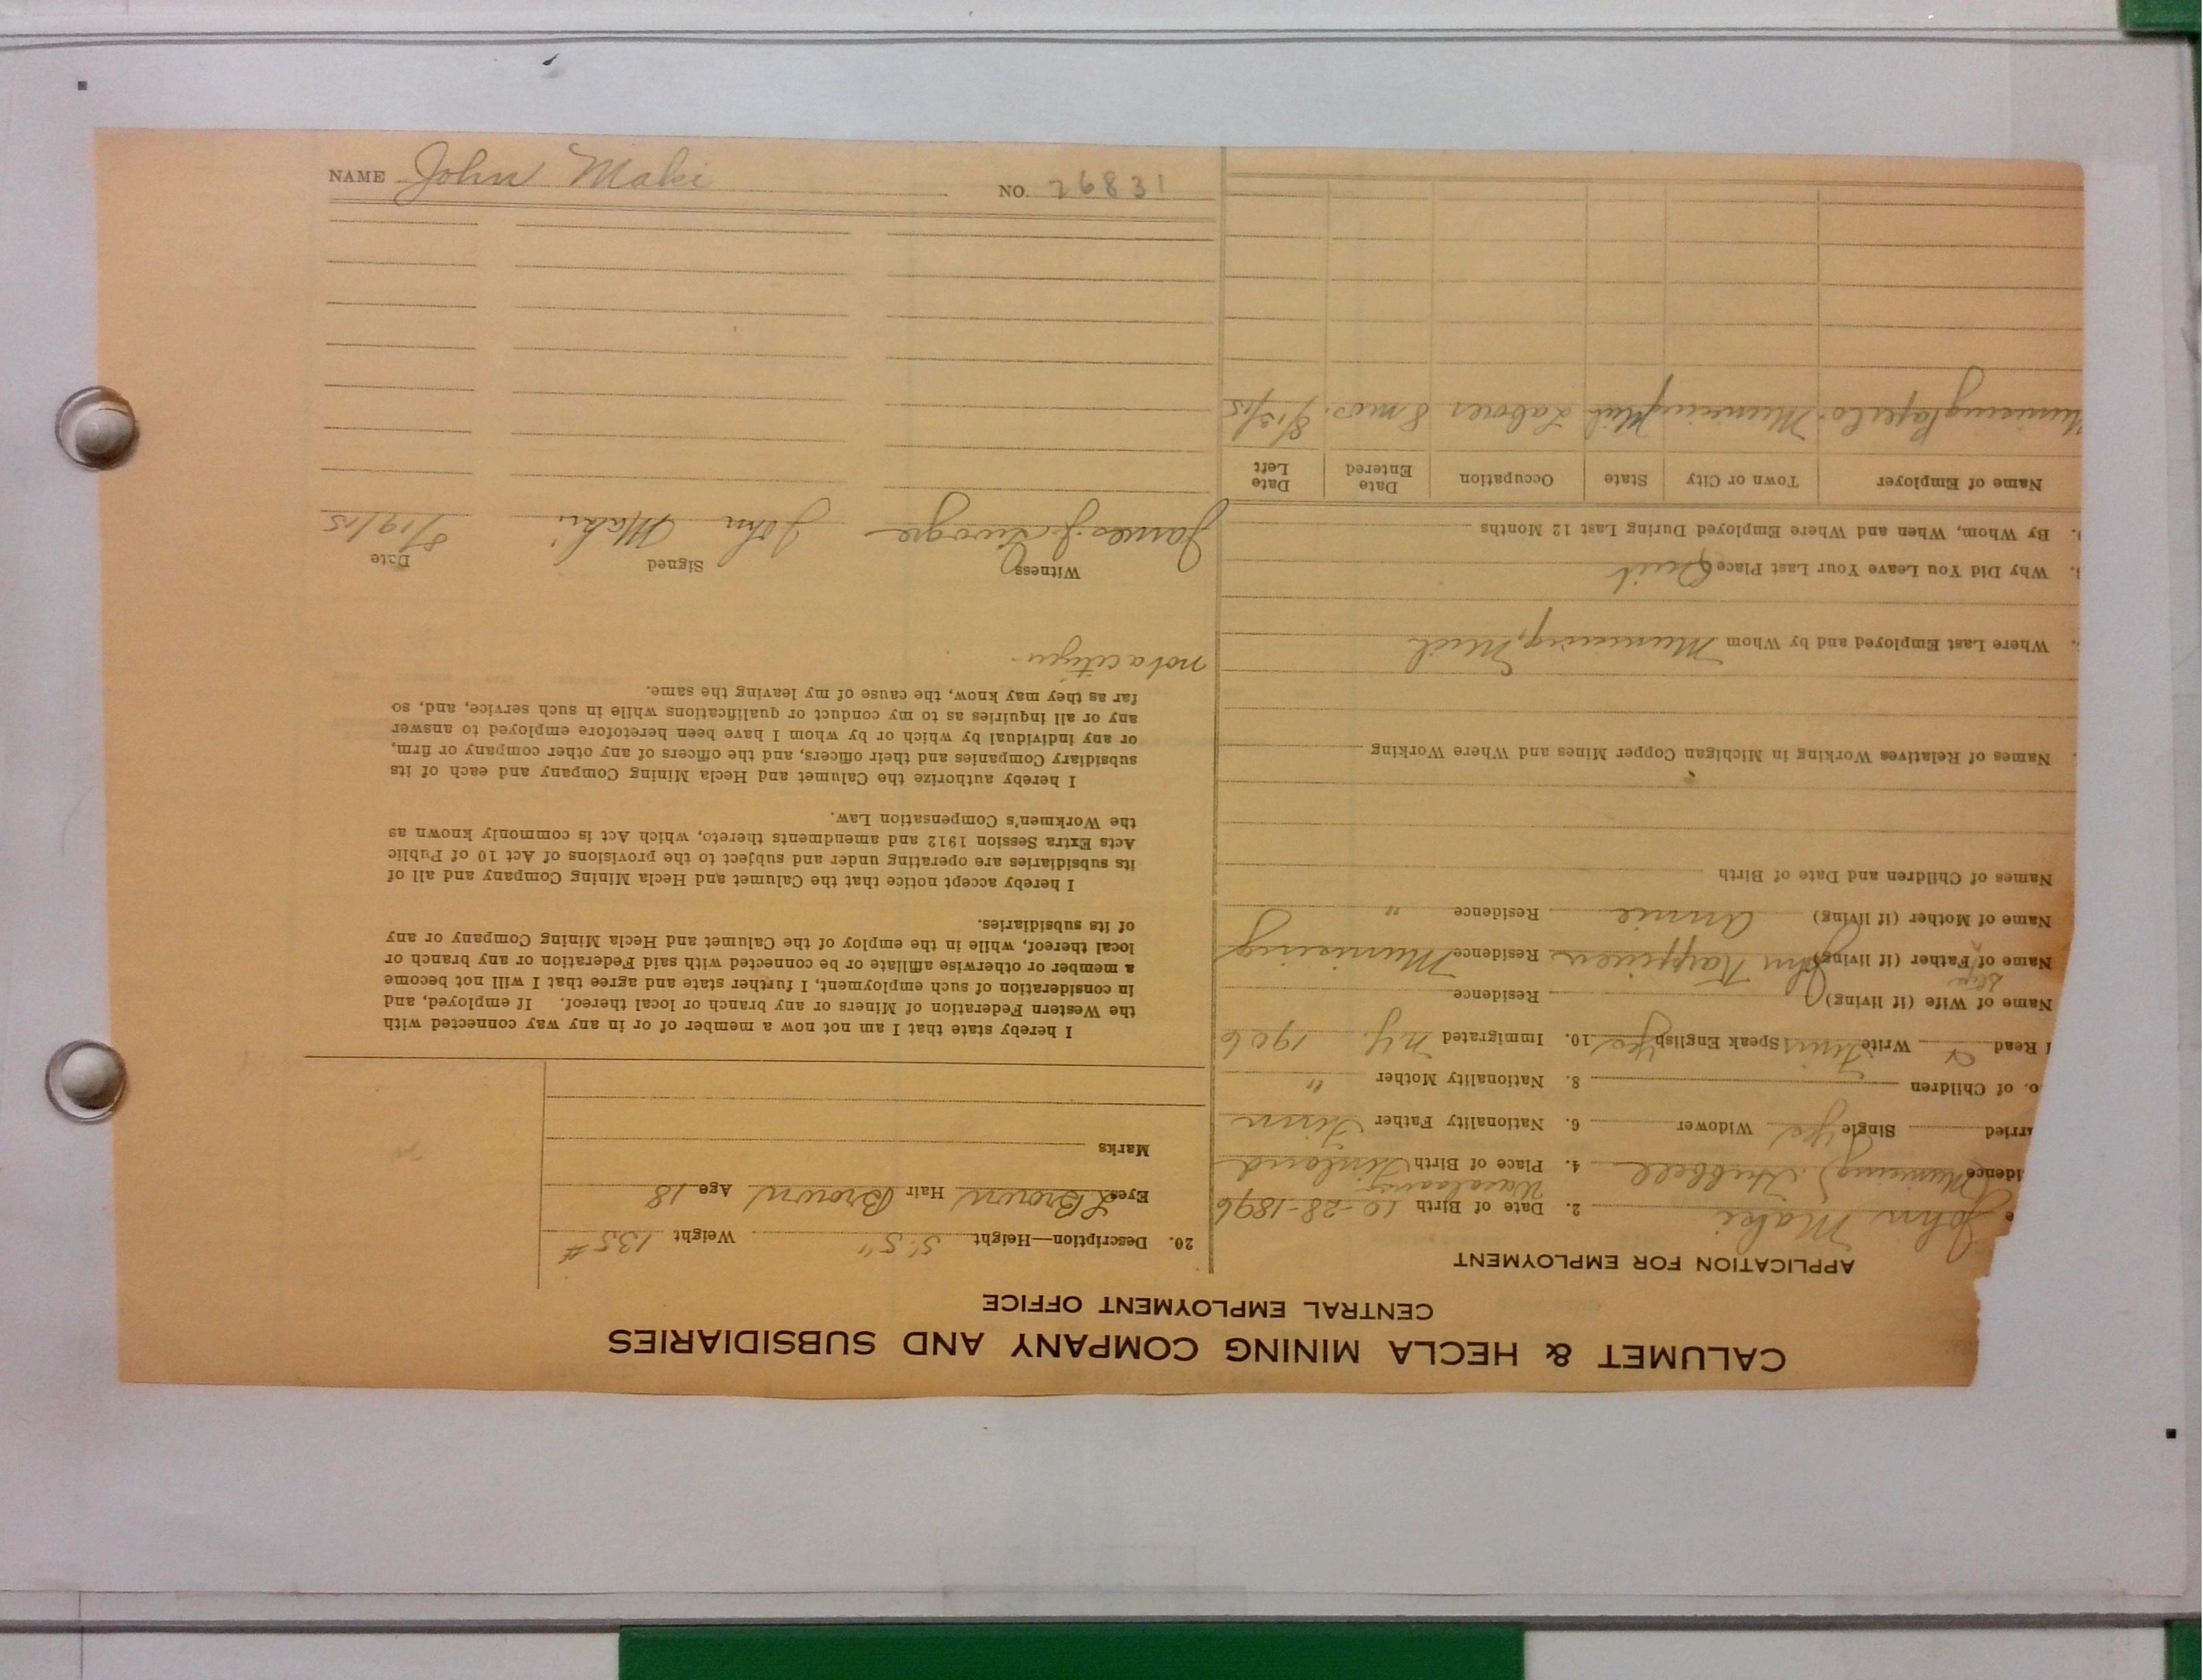 CALUMET & HECLA MINING COMPANY AND SUBSIDIARIES
CENTRAL EMPLOYMENT OFFICE
APPLICATION FOR EMPLOYMENT
e John Maki 2. Date of Birth 10-28-1896
idence Munising Hubbell 4. Place of Birth Finland
rried Single Yes Widower 6. Nationality Father Finn
o. of Children 8. Nationality Mother "
Read Write Finnis Speak English Yes 10. Immigrated N.Y. 1906
Name of Wife (if living) Residence
Name of Step Father (if living) John Residence Munising
Name of Mother (if living) Annie Residence "
Names of Children and Date of Birth
Names of Relatives Working in Michigan Copper Mines and Where Working
Where Last Employed and by Whom Munising, Mich
Why Did You Leave Your Last Place Quit
By Whom, When and Where Employed During Last 12 Months
Name of Employer Town or City State Occupation Date Entered Date Left
Munising Paper Co. Munising Mich Laborer 8 mos. 8/13/15
20. Description—Height 5' 5" Weight 135#
Eyes L Brown Hair Brown Age 18
Marks
I hereby state that I am not now a member of or in any way connected with
the Western Federation of Miners or any branch or local thereof. If employed, and
in consideration of such employment, I further state and agree that I will not become
a member or otherwise affiliate or be connected with said Federation or any branch or
local thereof, while in the employ of the Calumet and Hecla Mining Company or any
of its subsidiaries.
I hereby accept notice that the Calumet and Hecla Mining Company and all of
its subsidiaries are operating under and subject to the provisions of Act 10 of Public
Acts Extra Session 1912 and amendments thereto, which Act is commonly known as
the Workmen's Compensation Law.
I hereby authorize the Calumet and Hecla Mining Company and each of its
subsidiary Companies and their officers, and the officers of any other company or firm,
or any individual by which or by whom I have been heretofore employed to answer
any or all inquiries as to my conduct or qualifications while in such service, and, so
far as they may know, the cause of my leaving the same.
not a citizen
Witness Signed Date
James J. John Maki 8/19/15
NAME John Maki NO. 26831